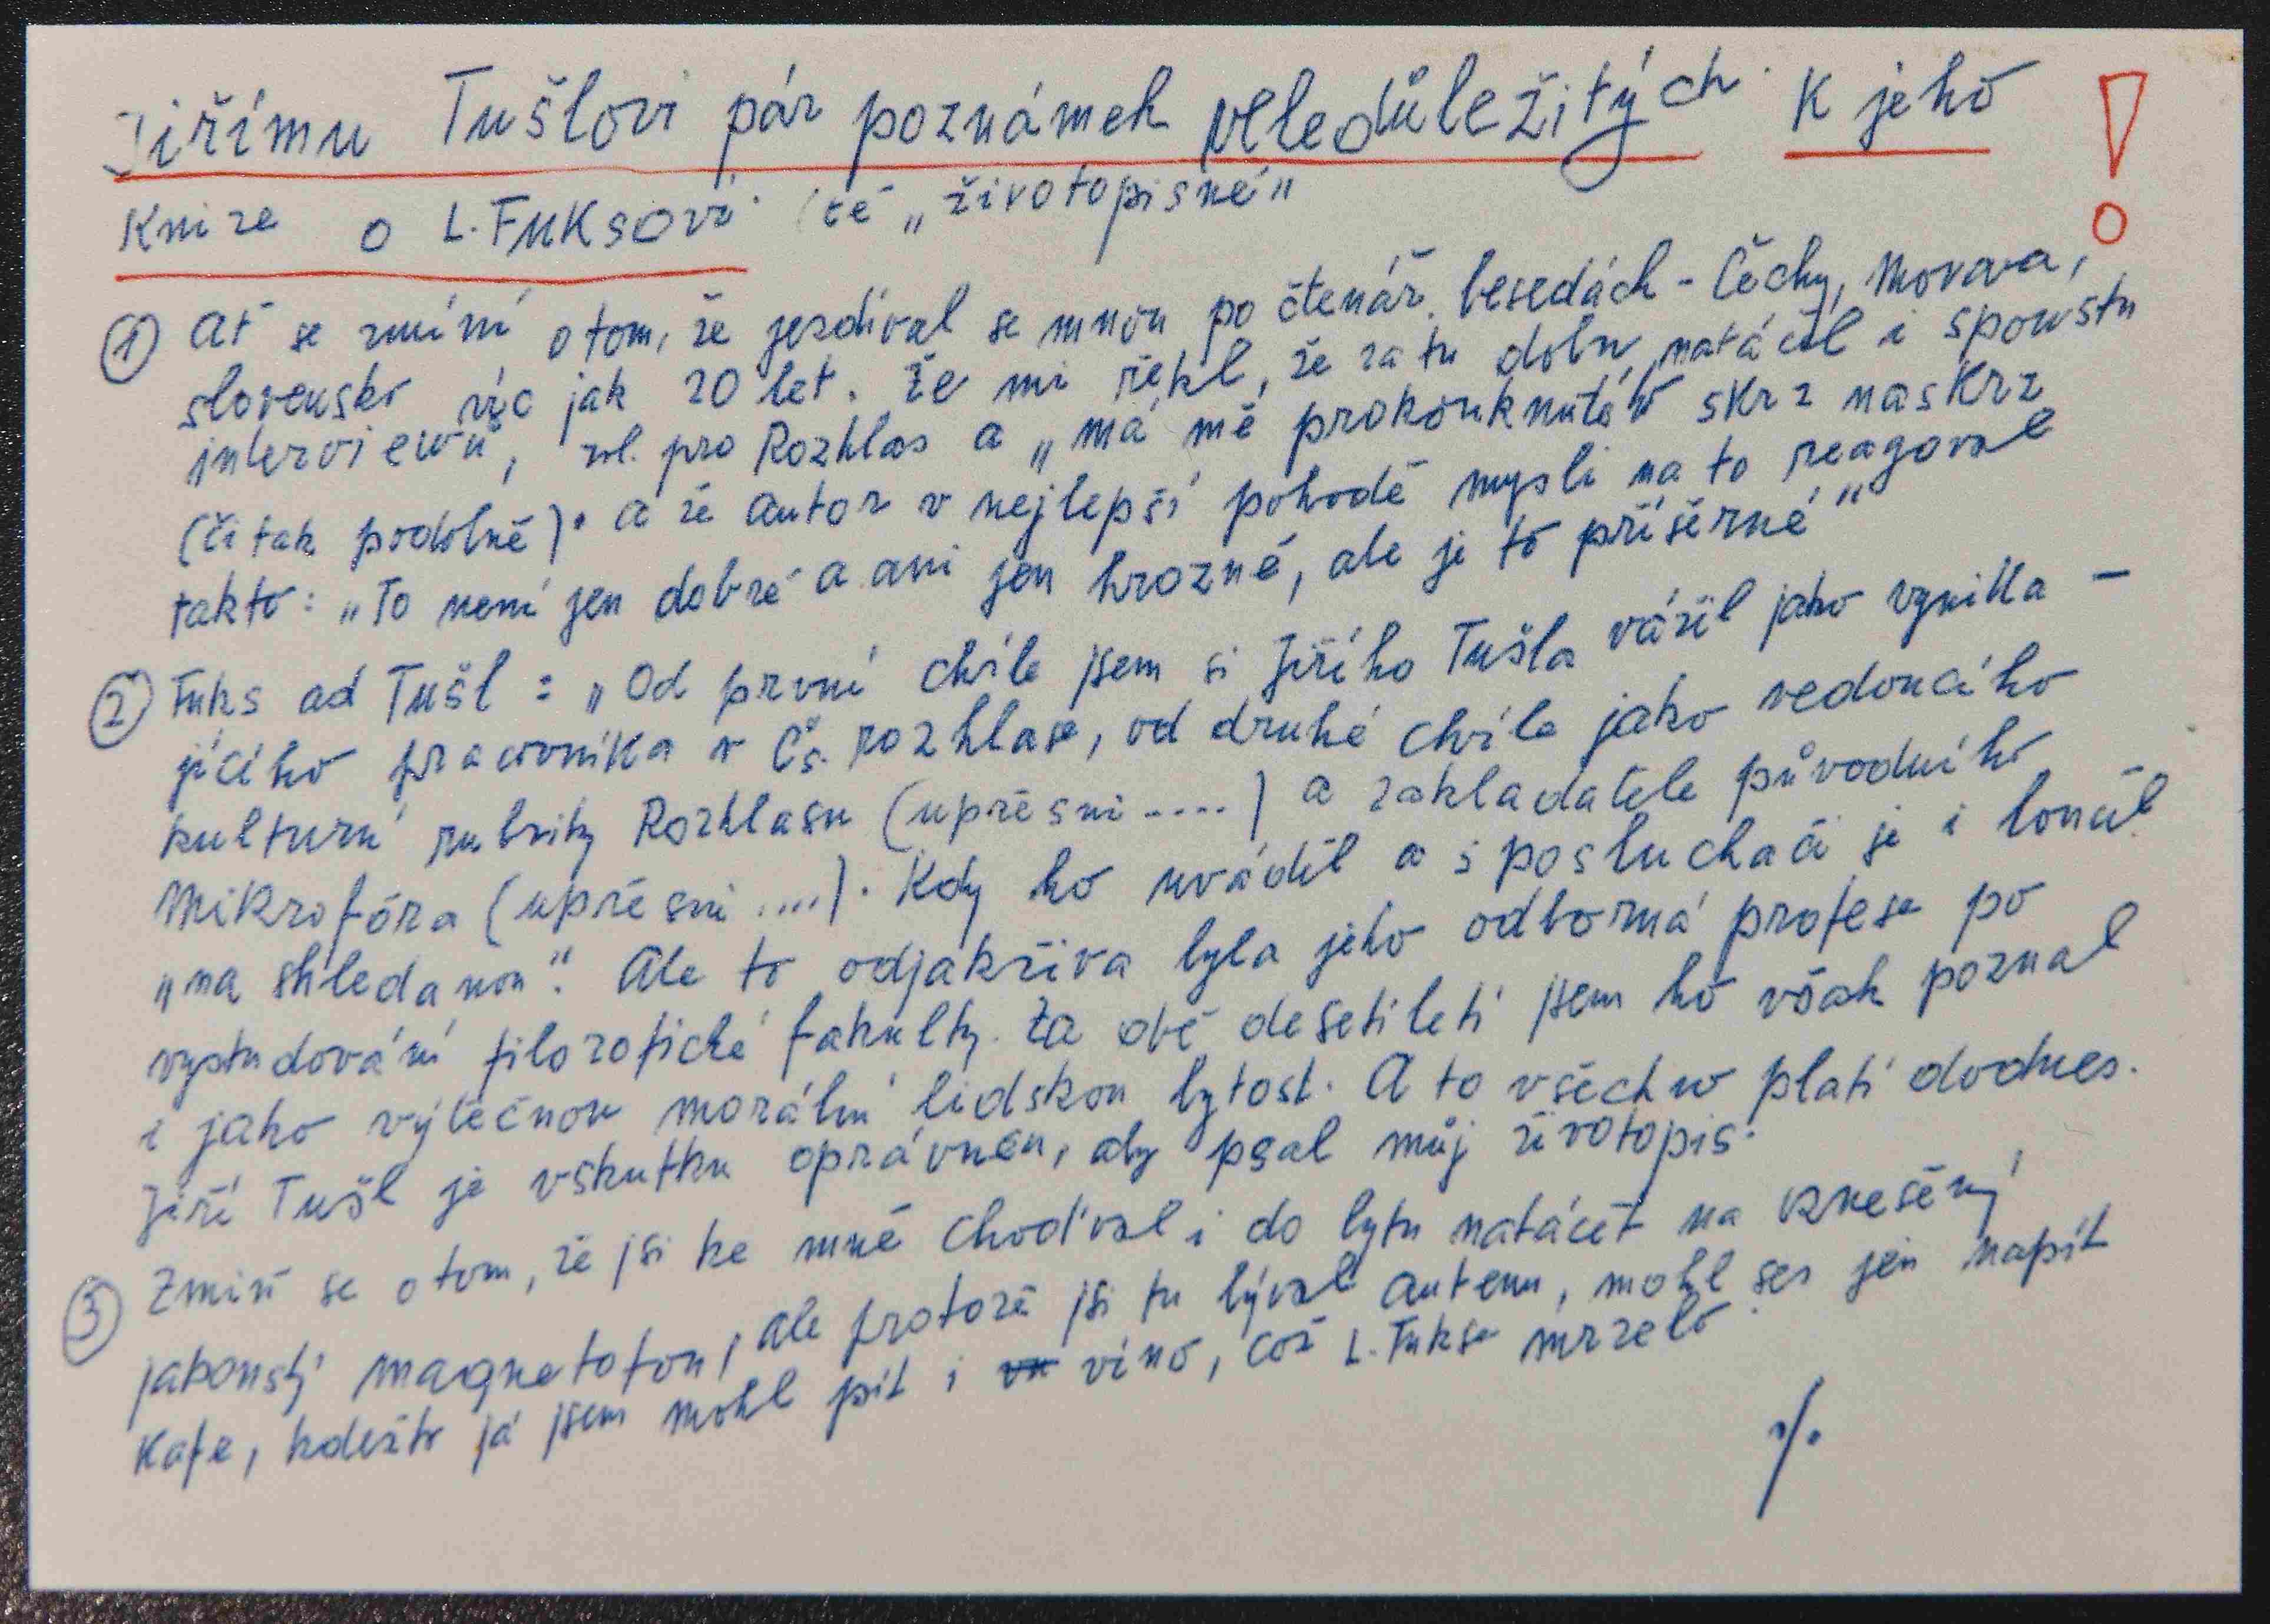 Jiřímu Tušlovi pár poznámek veledůležitých k jeho !
knize o L. Fuksovi (té „životopisné"
① Ať se zmíní o tom, že jezdíval se mnou po čtenář. besedách - Čechy, Morava,
Slovensko víc jak 20 let. Že mi řekl, že za tu dobu natáčel i spoustu
interviewů, zvl. pro Rozhlas a „má mě prokouknutého skrz naskrz
(či tak podobně). a že autor v nejlepší pohodě mysli na to reagoval
takto: „To není jen dobré a ani jen hrozné, ale je to příšerné"
② Fuks ad Tušl: „Od první chvíle jsem si Jiřího Tušla vážil jako vynika -
jícího pracovníka v Čs. rozhlase, od druhé chvíle jako vedoucího
kulturní rubriky Rozhlasu (upřesni ....) a zakladatele původního
Mikrofóra (upřesni ....). Kdy ho uváděl a s posluchači je i loučil
„na shledanou". Ale to odjakživa byla jeho odborná profese po
vystudování filozofické fakulty. Za obě desetiletí jsem ho však poznal
i jako výtečnou morální lidskou bytost. A to všechno platí dodnes.
Jiří Tušl je vskutku oprávněn, aby psal můj životopis.
③ Zmiň se o tom, že jsi ke mně chodíval i do bytu natáčet na kvešený
japonský magnetofon, ale protože jsi tu býval autem, mohl ses jen napít
kafe, kdežto já jsem mohl pít i víno, což L. Fukse mrzelo.
./.